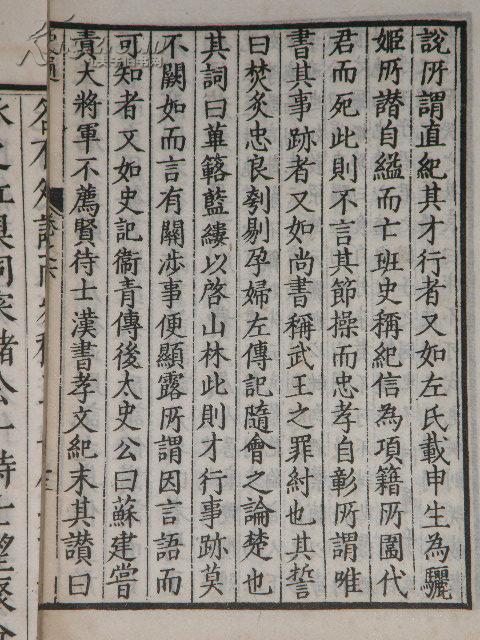 說所謂直紀其才行者又如左氏載申生為驪
姬所譖自縊而亡班史稱紀信為項籍所圍代
君而死此則不言其節操而忠孝自彰所謂唯
書其事跡者又如尚書稱武王之罪紂也其誓
曰焚炙忠良刳剔孕婦左傳記隨會之論楚也
其詞曰蓽簵藍縷以啓山林此則才行事跡莫
不闕如而言有關涉事便顯露所謂因言語而
可知者又如史記衞青傳後太史公曰蘇建嘗
責大將軍不薦賢待士漢書孝文紀末其讚曰